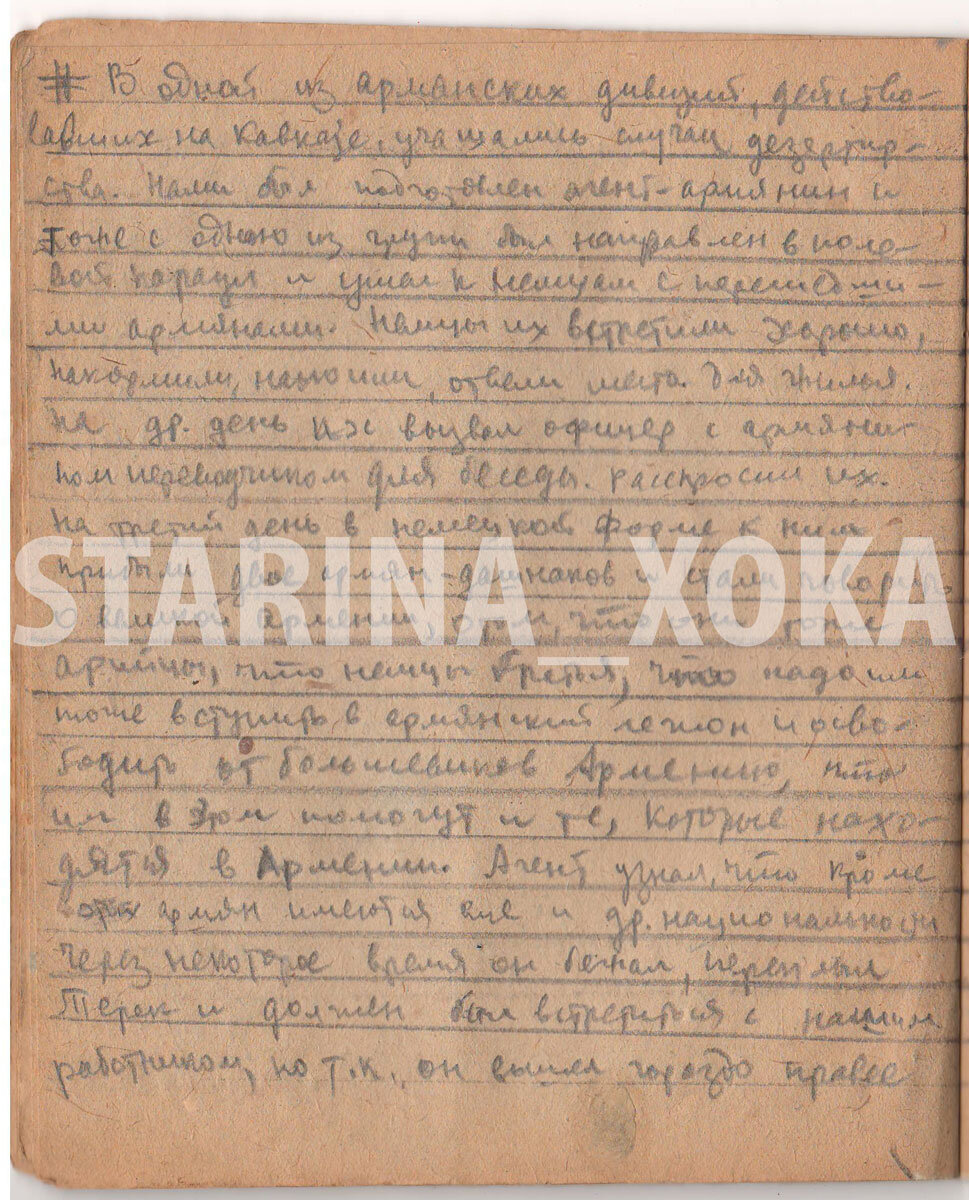 # В одной из армянских дивизий, действо-
вавших на Кавказе, участились случаи дезертир-
ства. Нами был подготовлен агент-армянин и
тоже с одною из групп был направлен в поле-
вой караул и ушел к немцам с перешедши-
ми армянами. Немцы их встретили хорошо,
накормили, напоили, отвели место для жилья.
На др. день их вызвал офицер с армяни-
ном переводчиком для беседы. Расспросил их.
На третий день в немецкой форме к ним
прибыли двое армян-дашнаков и стали говорить
о великой Армении, о том, что они тоже
арийцы, что немцы братья, что надо им
тоже вступить в армянский легион и осво-
бодить от большевиков Армению, что
им в этом помогут и те, которые нахо-
дятся в Армении. Агент узнал, что кроме
армян имеются еще и др. национальности
Через некоторое время он бежал, переплыл
Терек и должен был встретиться с нашим
работником, но т.к. он вышел гораздо правее
STARINA__XOKA